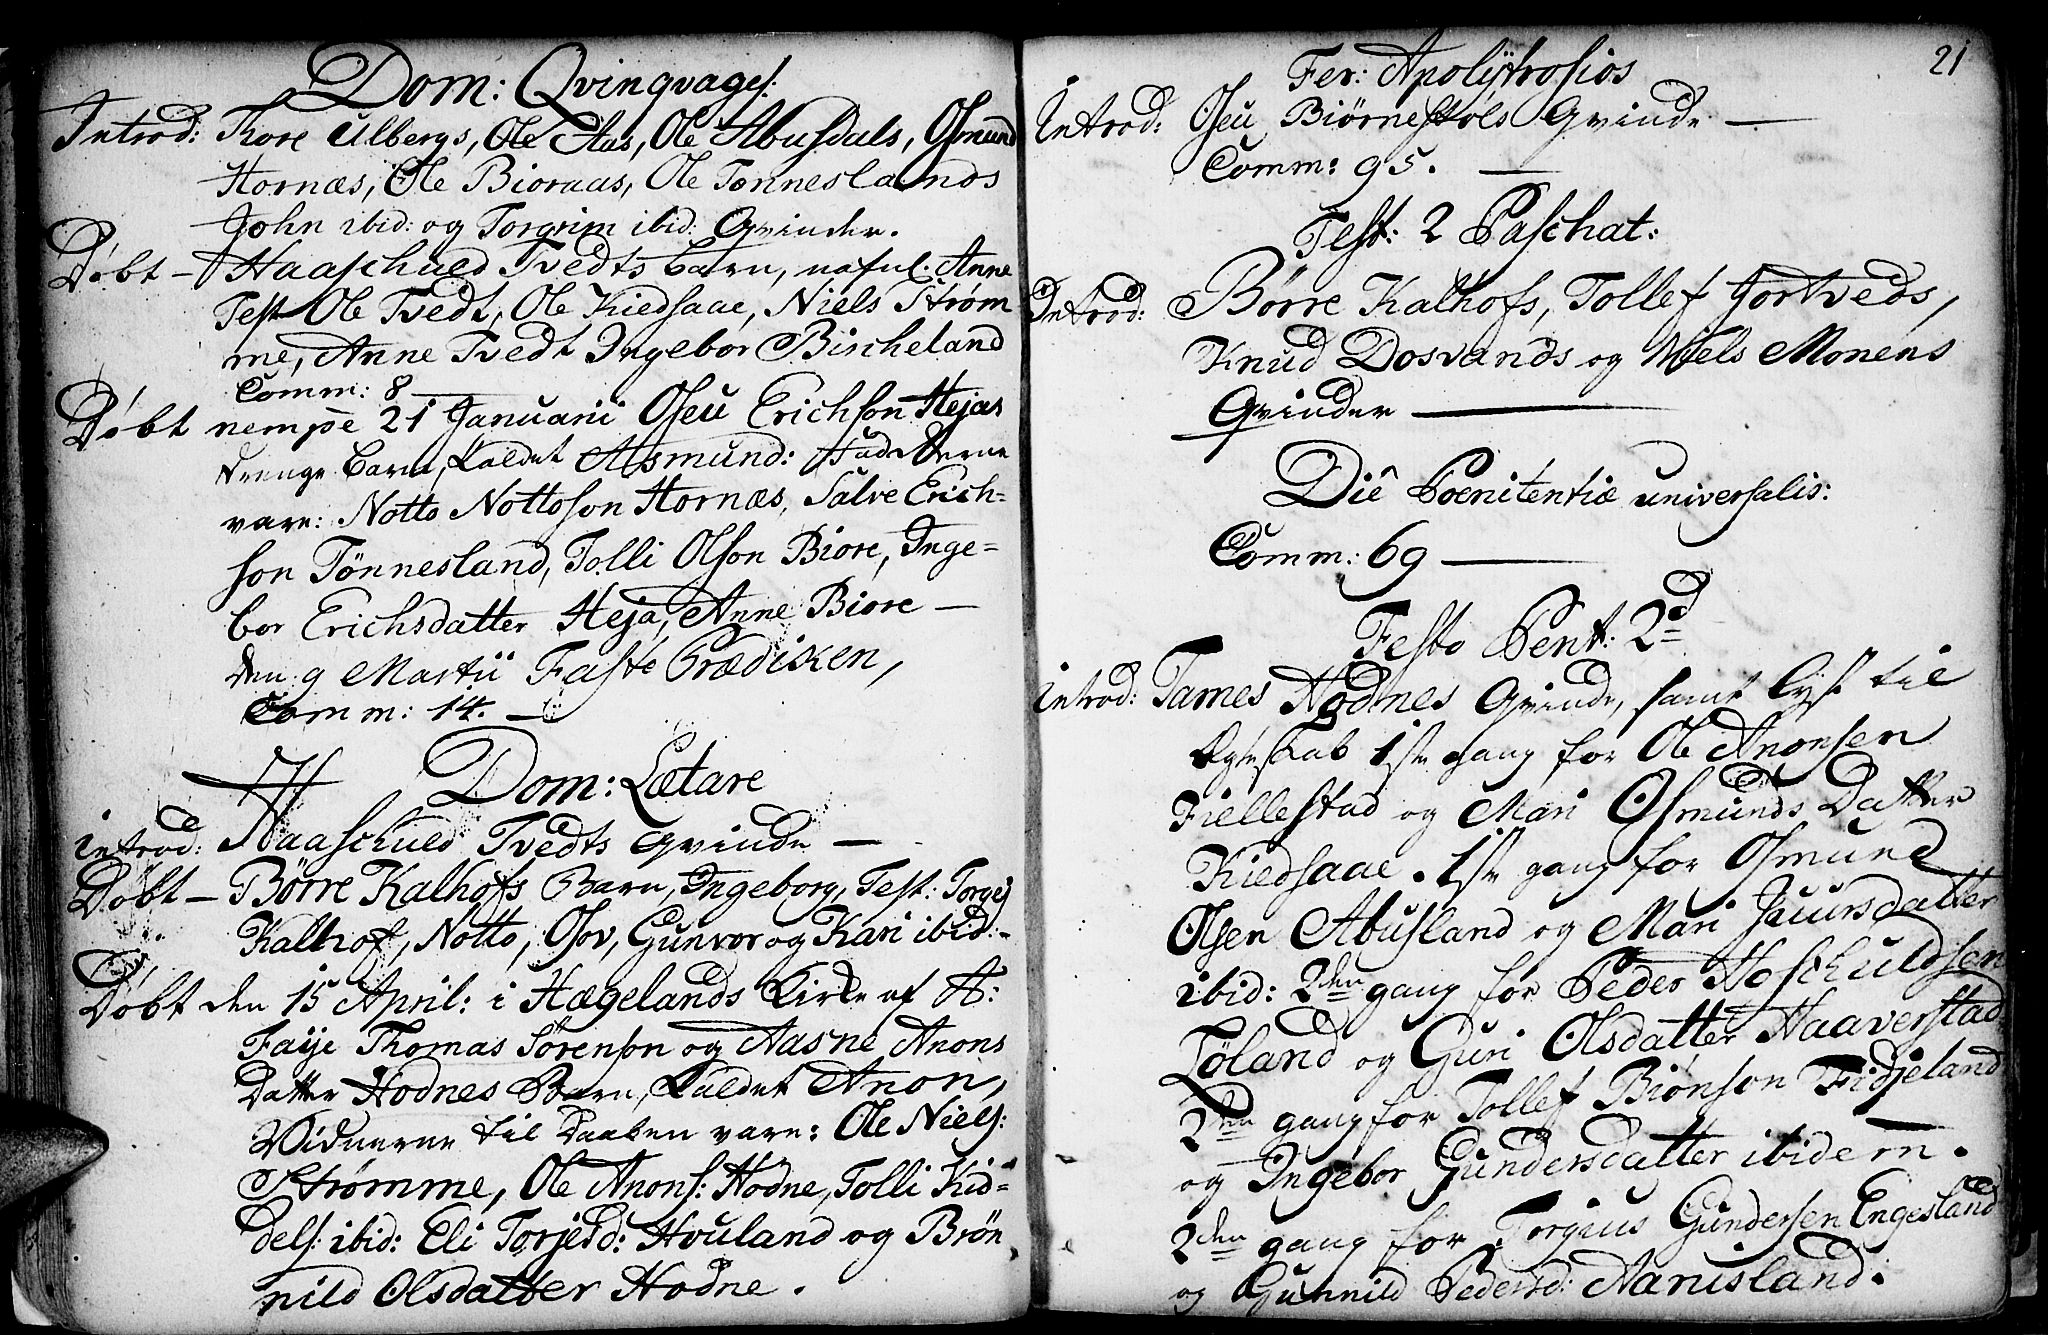 Dom: Qvinqvages:
Introd: Thore Ulbergs, Ole Aas, Ole Abusdals, Osmund
Hornæs, Ole Bioraas, Ole Tønneslands
John ibid: og Torgrim ibid: Qvinder.
Døbt — Haaschuld Tvedts barn, nafnl. Anne
Test Ole Tvedt, Ole Kiedsaae, Niels Strøm
me, Anne Tvedt Ingebor Bischeland
Comm: 8 —
Døbt nempe 21 Januarii Oseu Erichson Hejas
drenge barn, kaldet Asmund: Fadderne
vare: Notto Nottoson Hornæs, Salve Erich=
son Tønnesland, Tolli Olson Biore, Inge=
bor Erichsdatter Heja, Anne Biore —
den 9 Martii Faste Prædiken,
Comm: 14. —
Dom: Lætare
introd: Haaschuld Tvedts Qvinde —
Døbt — Børre Kalhofs Barn, Ingeborg, Test: Torgej
Kalhof, Notto, Osov, Gunvor og Kari ibid:
Døbt den 15 April: i Hægelands Kirke af H:
Faÿe Thomas Sørensøn og Aasne Anons
Datter Hodnes Barn, kaldet Anon,
Vidnerne til Daaben vare: Ole Niels:
Strømme, Ole Anons: Hodne, Tolli Kid=
dels: ibid: Eli Torjesd: Houland og Brøn
nild Olsdatter Hodne.
21
Fer: Apolÿtrosios
Introd: Oseu Biørnestols Qvinde —
Comm: 95. —
Fest: 2 Paschat:
Introd: Børre Kalhofs, Tollef Jortveds,
Knud Dosvands og Niels Monens
Qvinder —
Diê Poenitentiæ universalis:
Comm: 69 —
Festo Pent: 2d
introd: Tames Hodnes Qvinde, samt lyst til
Egteskab 1ste gang for Ole Anonsen
Fiellestad og Mari Osmunds Datter
Kiedsaae. 1ste gang for Osmund
Olsen Abusland og Mari Juursdatter
ibid: 2den gang for Peder Hoschuldson
Løland og Guri Olsdatter Haaverstad
2den gang for Tollef Biønson Fidjeland
og Ingebor Gundersdatter ibidem.
2den gang for Torgius Gundersen Engesland
og Gunnild Pedersd: Aanisland.